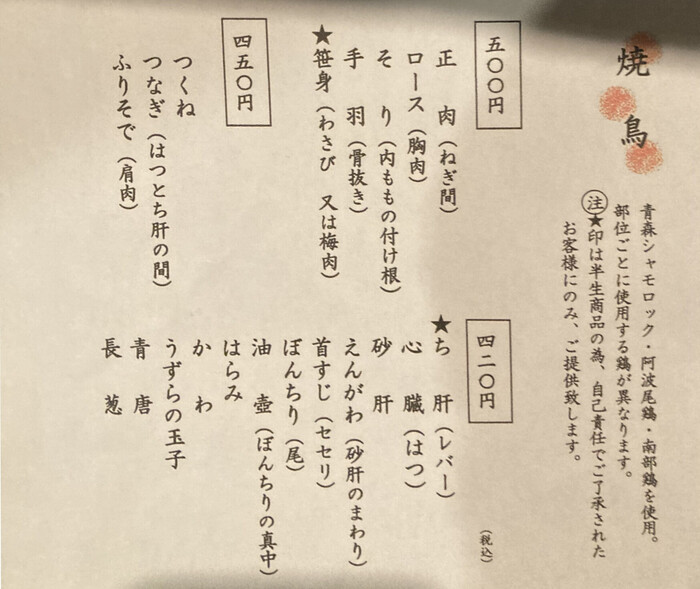 焼鳥
青森シャモロック・阿波尾鶏・南部鶏を使用。
部位ごとに使用する鶏が異なります。
注★印は半生商品の為、自己責任でご了承された
お客様にのみ、ご提供致します。
五〇〇円
正肉(ねぎ間)
ロース(胸肉)
そり(内ももの付け根)
手羽(骨抜き)
★笹身(わさび 又は梅肉)
四五〇円
つくね
つなぎ(はつとち肝の間)
ふりそで(肩肉)
(税込)
四二〇円
★ち肝(レバー)
心臓(はつ)
砂肝
えんがわ(砂肝のまわり)
首すじ(セセリ)
ぼんちり(尾)
油壺(ぼんちりの真中)
はらみ
かわ
うずらの玉子
青唐
長葱